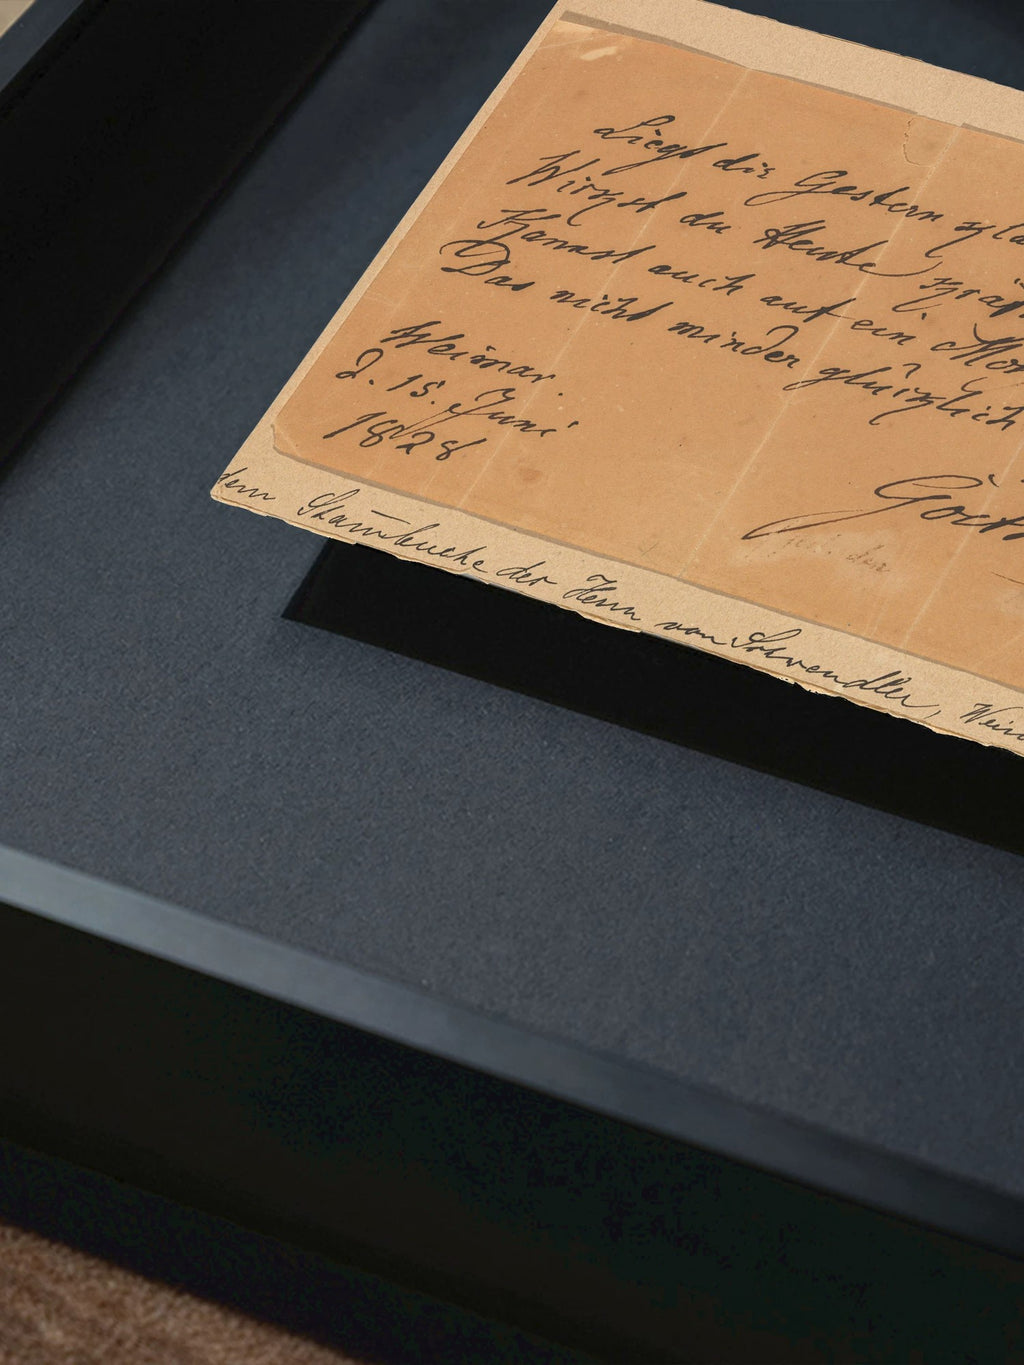 Liegt dir Gestern
Wirkst du Heute
Kannst auch auf ein
Das nicht minder glücklich
Weimar.
d. 15. Juni
1828
Goeth
dem Stam̅buche der Herrn von Schwendler,